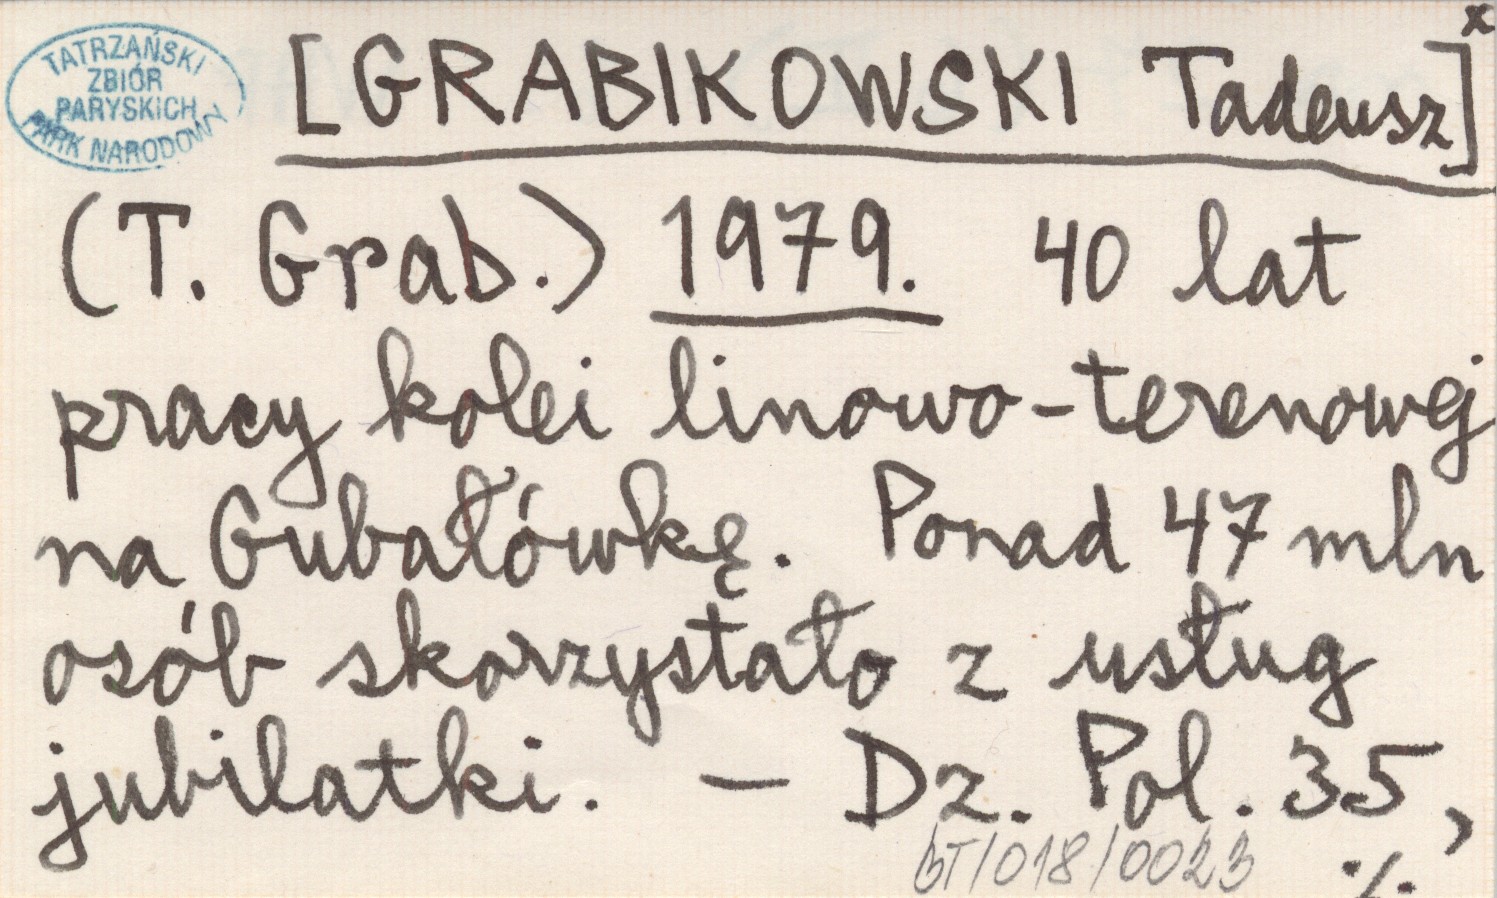 TATRZAŃSKI
ZBIÓR
PARYSKICH
PARK NARODOWY
[GRABIKOWSKI Tadeusz]x
(T. Grab.) 1979. 40 lat
pracy kolei linowo-terenowej
na Gubałówkę. Ponad 47 mln
osób skorzystało z usług
jubilatki. — Dz. Pol. 35,
BT/018/0023 ./.